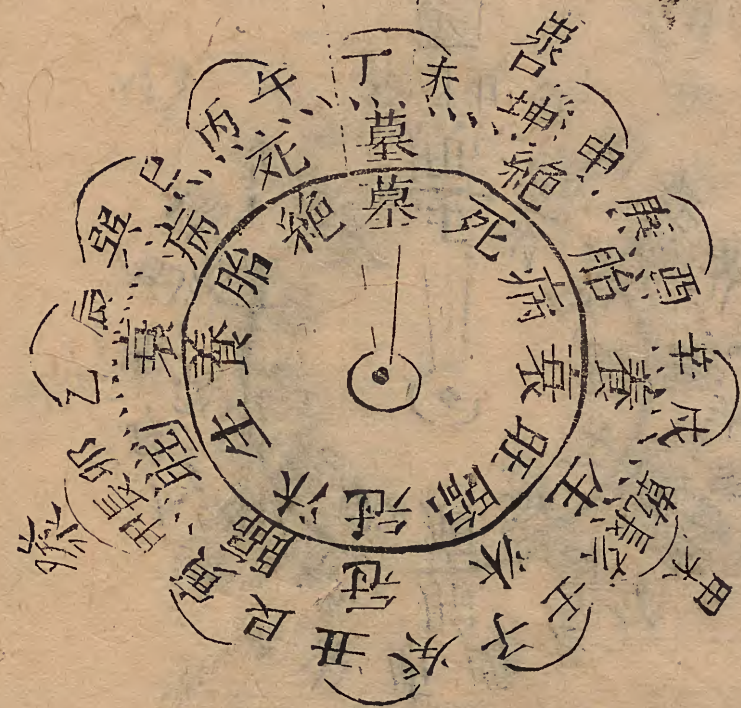 丁未
坤申
庚酉
辛戌
乾亥
壬子
癸丑
艮寅
甲卯
乙辰
巽巳
丙午
墓絕胎養生沐冠臨旺衰病死
墓死病衰旺臨冠沐生養胎絕
甲木